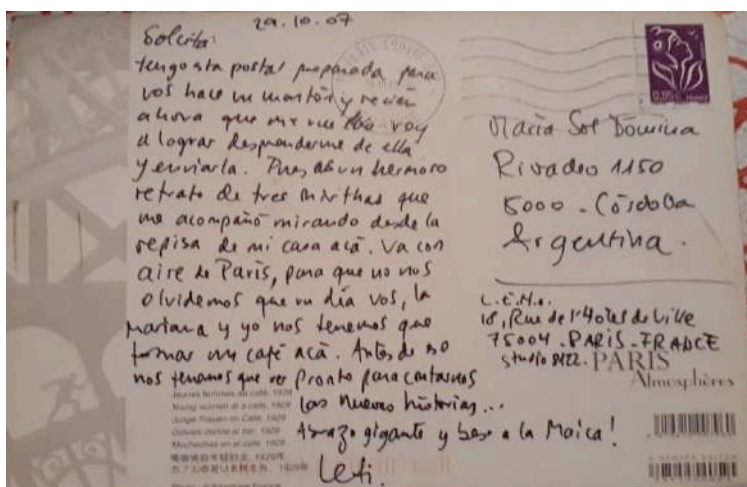 29.10.07
Solcita:
tengo esta postal preparada para
vos hace un montón y recién
ahora que me voy a
lograr desprenderme de ella
y enviarla. Pues es un hermoso
retrato de tres minthas que
me acompañó mirando desde la
repisa de mi casa acá. Va con
aire de París, para que no nos
olvidemos que un día vos, la
Mariana y yo nos tenemos que
tomar un café acá. Antes de eso
nos tenemos que ver pronto para contarnos
las nuevas historias...
Abrazo gigante y beso a la Maica!
Leti.
María Sol Domina
Rivadeo 1150
5000 - Córdoba
Argentina.
L.E.M.
18, Rue de l'Hotel de Ville
75004 - PARIS - FRANCE
Studio 8122.
PARIS
Atmosphères
Jeunes femmes au café, 1929
Young women at a café, 1929
Junge Frauen im Café, 1929
Giovani donne al bar, 1929
Muchachas en el café, 1929